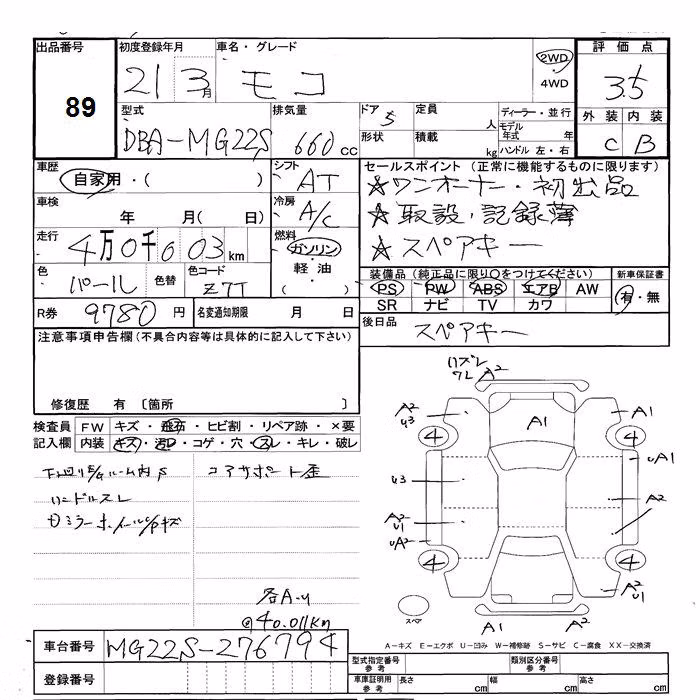 出品番号 初度登録年月 車名・グレード 評価点
89 21 3月 モコ 2WD・4WD 3.5
型式 排気量 ドア 定員 ディーラー・並行 外装 内装
DBA-MG22S 660cc 5 人 モデル年式 年 C B
形状 積載 kg ハンドル 左・右
車歴 シフト セールスポイント(正常に機能するものに限ります)
自家用・( ) AT ☆ワンオーナー・初出品
車検 冷房 ☆取説・記録簿
年 月( 日) A/C ☆スペアキー
走行 燃料
4万0千003km ガソリン・軽油・( )
色 色替 色コード 装備品(純正品に限り○をつけてください) 新車保証書
パール Z7T PS PW ABS エアB AW 有・無
SR ナビ TV カワ
R券 9780円 名変通知期限 月 日 後日品 スペアキー
注意事項申告欄(不具合内容等は具体的に記入して下さい)
修復歴 有〔箇所 〕
検査員 FW キズ・飛石・ヒビ割・リペア跡・×要
記入欄 内装 キズ・汚レ・コゲ・穴・スレ・キレ・破レ
コアサポート歪
ハンドルスレ
各A・U
@40.011km
ハズレ
ワレ A2
A2 A1 A1
U3
4 4
UA1
U3 A2
A2
U1
UA2
4 4
A2
U1
スペア A1 A2
A-キズ E-エクボ U-凹み W-補修跡 S-サビ C-腐食 XX-交換済
車台番号 MG22S-276794
型式指定番号 参考 類別区分番号 参考
登録番号 車庫証明用 参考 長さ cm 幅 cm 高さ cm